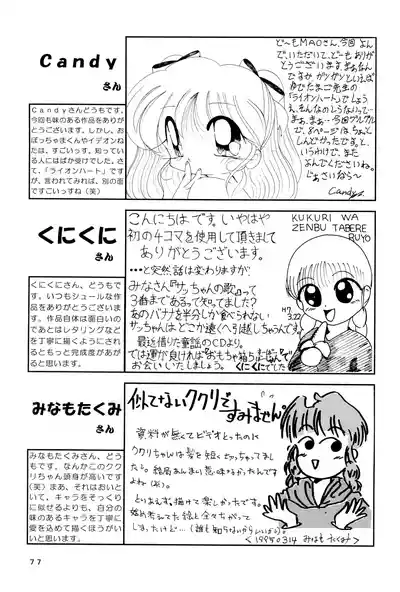 Candy
さん
Candyさんどうもです。
今回も味のある作品をありが
とうございます。しかし、お
ぼっちゃまくんやイデオンね
たは、すごいっす。知ってい
る人にはばか受けでした。さて、
「ライオンハート」です
が、言われてみれば、別の面
ですごいっすね(笑)
ど〜もMAOさん、今回 よん
で、いただいて、ど〜も あり
がとうございます。
「ライオンハート」でしょう
というわけで、また
よんでくださいね。
じぁさいなら〜
Candy
くにくに
さん
くにくにさん、どうもで
す。いつもシュールな作
品をありがとうございま
す。作品自体は面白いの
であとはレタリングなど
を丁寧に描くようにされ
るともっと完成度があが
ると思います。
こんにちはです。いやはや
初の4コマを使用して頂きまして
ありがとうございます。
…と突然、話は変わりますが
みなさん『サッちゃんの歌』って
3番まであるって知ってました?
あのバナナを半分しか食べられない
サッちゃんはどこか遠くへ引越しちゃうんです。
最近借りた童話のCDより。
では運が良ければ『おもちゃ箱きっぱーん』で
お会いいたしましょう。くにくにでした
KUKURI WA
ZENBU TABERE
RUYO
H7
3.22
みなもたくみ
さん
みなもたくみさん、どう
もです。なんかこのクク
リちゃん頭身が高いです
(笑)まあ、それはおいと
いて、キャラをそっくり
に似せるよりも、自分の
味のあるキャラを丁寧に
愛を込めて描くほうがい
いと思います。
似てないククリですみません。
資料が無くてビデオとったのに
ククリちゃんは髪を短く切っちゃってまし
た。結局あんまし意味なかったんです
よね(笑)。
とりあえず、描けて楽しかったです。
始め考えてた絵と全々ちがって
しまったけど…(誰も知らないからいいけど)。
1995 03 14 みなもたくみ
77